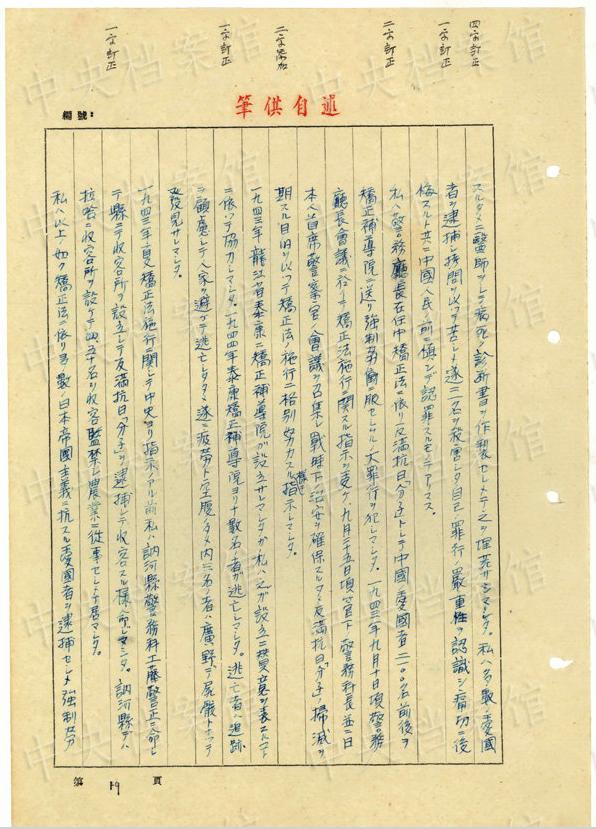 四字訂正
一字訂正
二字訂正
二字添加
一字訂正
一字訂正
筆供自述
編號：
スルタメニ醫師ヲシテ病死ノ診断書ヲ作製セシメテ之ヲ埋葬サシマシタ。私ハ多数ノ愛國
者ヲ逮捕シ拷問ヲ以ツテ苦シメ遂ニ二名ヲ殺害シタ自己ノ罪行ノ嚴重性ヲ認識シ痛切ニ後
悔スルト共ニ中國人民ノ前ニ慎ンデ認罪スルモノデアリマス。
私ハ警務廳長在任中矯正法ニ依リ反満抗日分子トシテ中國愛國者二〇〇名前後ヲ
矯正補導院ニ送リ強制労働ニ服セシメル大罪行ヲ犯シマシタ。一九四三年九月十日頃警務
廳長會議ニ於テ矯正法施行ニ関スル指示ヲ受ケ九月二十五日頃管下警務科長並ニ日
本人首席警察官ノ會議ヲ召集シ戦時下治安ヲ確保スルタメ反満抗日分子ノ掃滅ヲ
期スル目的ヲ以ツテ矯正法ノ施行ニ格別努力スル様指示シマシタ。
一九四三年龍江省泰康ニ矯正補導院ガ設立サレマシタガ私ハ之ガ設立ニ賛意ヲ表スルコト
ニ依ツテ協力シマシタ。一九四四年泰康矯正補導院ヨリ十数名ノ者ガ逃亡シマシタ。逃亡者ハ追跡
ヲ顧慮シテ人家ヲ避ケテ逃亡シタタメ遂ニ疲労ト空腹ノタメ内三名ノ者ハ廣野デ屍嚴トナツテ
発見サレマシタ。
一九四三年夏矯正法施行ニ関シテ中央ヨリ指示ノアル前私ハ訥河縣警務科工藤警正ニ命シ
テ縣ニテ收容所ヲ設立シテ反満抗日分子ヲ逮捕シテ收容スル様命シマシタ。訥河縣デハ
拉哈ニ收容所ヲ設ケテ四、五十名ヲ收容監禁シ農業ニ従事セシメテ居マシタ。
私ハ以上ノ如ク矯正法ニ依リ多数ノ日本帝國主義ニ抗スル愛國者ヲ逮捕セシメ強制労
第 19 頁
中央档案馆